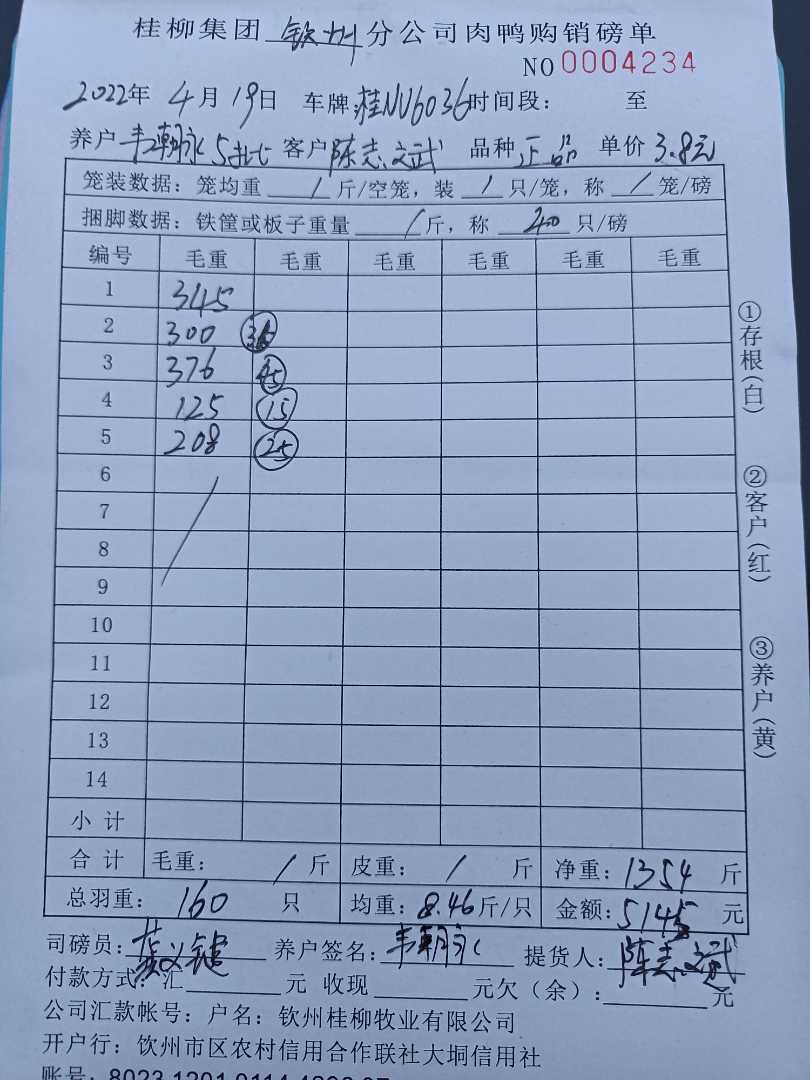 桂柳集团 钦州 分公司肉鸭购销磅单
NO 0004234
2022年 4月 19日 车牌:桂NU6036 时间段: 至
养户 韦朝永 5批 客户 陈志武 品种 正品 单价 3.8元
笼装数据: 笼均重 / 斤/空笼, 装 / 只/笼, 称 / 笼/磅
捆脚数据: 铁筐或板子重量 / 斤, 称 只/磅
编号 毛重 毛重 毛重 毛重 毛重 毛重
1 345
2 300
3 376 45
4 125 15
5 208 25
6
7
8
9
10
11
12
13
14
小计
合计 毛重: / 斤 皮重: / 斤 净重: 1354 斤
总羽重: 160 只 均重: 8.46 斤/只 金额: 5145 元
司磅员: 养户签名: 韦朝永 提货人: 陈志武
付款方式: 汇 元 收现 元欠(余): 元
公司汇款帐号: 户名: 钦州桂柳牧业有限公司
开户行: 钦州市区农村信用合作联社大垌信用社
①存根(白)
②客户(红)
③养户(黄)